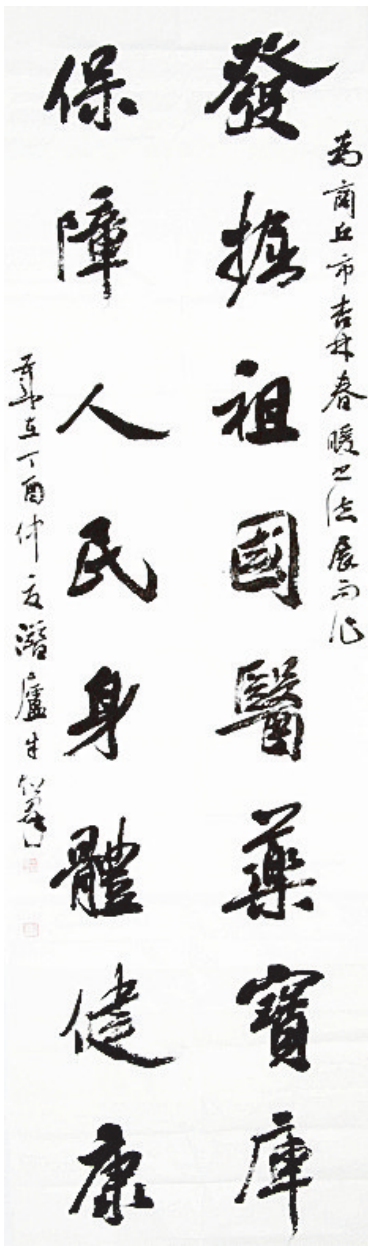 為商丘市杏林春暖书法展而作
發掘祖國醫藥寶庫
保障人民身體健康
歲在丁酉仲夏潛廬牛